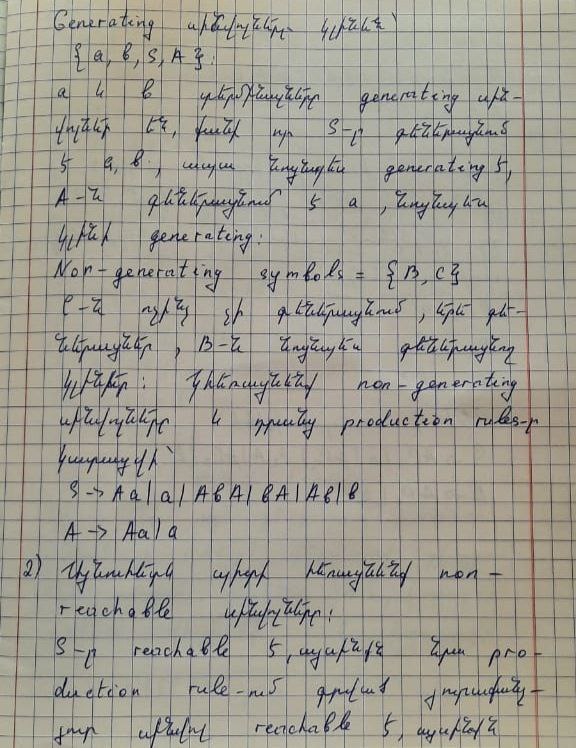 Generating սիմվոլները կլինեն՝
{a, b, S, A}:
a և b տերմինալները generating սիմ-
վոլներ են, քանի որ S-ը գեներացնում
է a, b, ապա նույնպես generating է,
A-ն գեներացնում է a, նույնպես
կլինի generating:
Non-generating symbols = {B, C}
C-ն ոչինչ չի գեներացնում, եթե գե-
ներացներ, B-ն նույնպես գեներացնող
կլիներ: Հեռացնենք non-generating
սիմվոլները և դրանց production rules-ը
կստացվի՝
S -> Aa | a | AbA | bA | Ab | b
A -> Aa | a
2) Այնուհետև պետք հեռացնենք non-
reachable սիմվոլները:
S-ը reachable է, այսինքն նրա pro-
duction rule-ում գրված յուրաքանչ-
յուր սիմվոլ reachable է, այսինքն